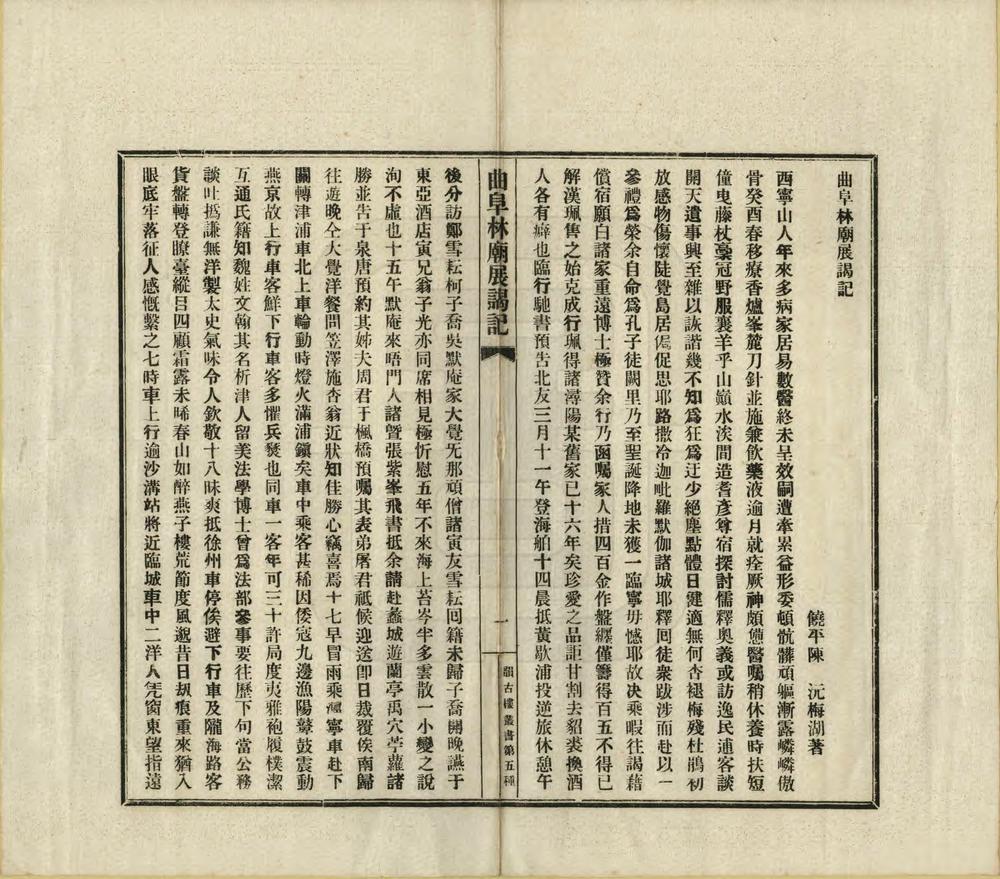 曲阜林廟展謁記
饒平陳　沅梅湖著
西寧山人年來多病家居易數醫終未呈效嗣遭牽累益形委頓骯髒頑軀漸露嶙嶙傲
骨癸酉春移療香爐峯麓刀針並施兼飲藥液逾月就痊厥神頗憊醫囑稍休養時扶短
僮曳藤杖臺冠野服襄羊乎山巔水涘間造耆彥尊宿探討儒釋奧義或訪逸民逋客談
開天遺事興至雜以詼諧幾不知爲狂爲迂少絕塵點體日健適無何杏褪梅殘杜鵑初
放感物傷懷陡覺島居侷促思耶路撒冷迦毗羅默伽諸城耶釋回徒衆跋涉而赴以一
參禮爲榮余自命爲孔子徒闕里乃至聖誕降地未獲一臨寧毋憾耶故决乘暇往謁藉
償宿願白諸家重遠博士極贊余行乃函囑家人措四百金作盤纏僅籌得百五不得已
解漢珮售之始克成行珮得諸潯陽某舊家已十六年矣珍愛之品詎甘割去貂裘換酒
人各有癖也臨行馳書預告北友三月十一午登海舶十四晨抵黃歇浦投逆旅休憩午
曲阜林廟展謁記
一
韻古樓叢書第五種
後分訪鄭雪耘柯子喬吳默庵家大覺旡那頑僧諸寅友雪耘回籍未歸子喬開晚讌于
東亞酒店寅兄翁子光亦同席相見極忻慰五年不來海上苔岑半多雲散一小變之說
洵不虛也十五午默庵來唔門人諸曁張紫峯飛書抵余請赴蠡城遊蘭亭禹穴苧蘿諸
勝並告于泉唐預約其姊夫周君于楓橋預囑其表弟屠君祇候迎送卽日裁覆俟南歸
往遊晚仝大覺洋餐問笠澤施杏翁近狀知佳勝心竊喜焉十七早冒雨乘滬寧車赴下
關轉津浦車北上車輪動時燈火滿浦鎭矣車中乘客甚稀因倭寇九邊漁陽鼙鼓震動
燕京故上行車客鮮下行車客多懼兵燹也同車一客年可三十許局度夷雅袍履樸潔
互通氏籍知魏姓文翰其名析津人留美法學博士曾爲法部參事要往歷下句當公務
談吐撝謙無洋製太史氣味令人欽敬十八昧爽抵徐州車停俟避下行車及隴海路客
貨盤轉登瞭臺縱目四顧霜露未晞春山如醉燕子樓荒節度風邈昔日刼痕重來猶入
眼底牢落征人感慨繫之七時車上行逾沙溝站將近臨城車中二洋人凭窗東望指遠